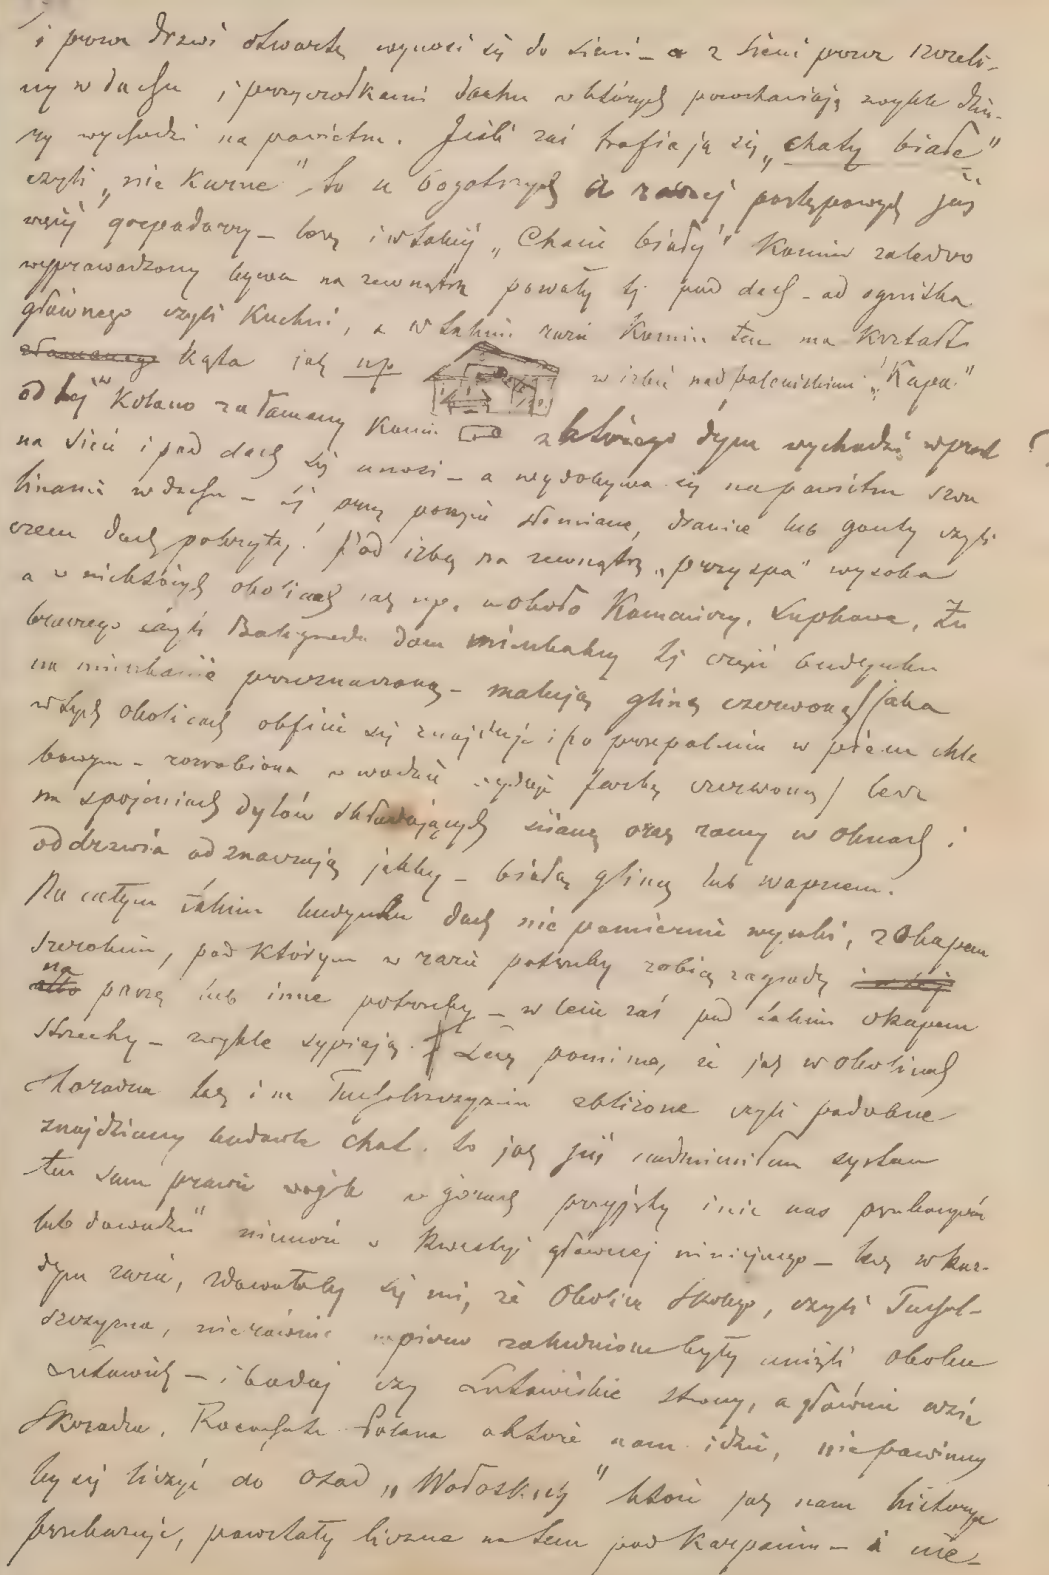 i przez drzwi otwarte wynosi się do sieni – a z sieni przez szczeli-
ny w dachu i przyczółkami dachu w których pozostawiają zwykle dziu-
ry wychodzi na powietrze. Jeśli zaś trafiają się „chaty białe"
czyli „nie kurne" to u bogatszych a raczej postępowych już
więcej gospodarzy – lecz i w takiej „Chacie białej" Komin zaledwo
wyprowadzony bywa na zewnątrz powały tj pod dach – od ogniska
głównego czyli Kuchni, a w takim razie Komin ten ma kształt
kąta jak np w izbie nad paleniskiem „Kapa"
od tej w Kolano załamany Komin z którego dym wychodzi wprost
na sień i pod dach się unosi – a wydobywa się na powietrze szcze
linami w dachu – tj przez poszycie słomiane, dranice lub gonty czyli
czem dach pokryty! Pod izbą na zewnątrz „przyspa" wysoka
a w niektórych okolicach jak np. w około Komańczy, Łupkowa, Żu
braczego czyli Baligrodu dom mieszkalny tj część budynku
na mieszkanie przeznaczoną – malują gliną czerwoną (jaka
w tych okolicach obficie się znajduje i po przepaleniu w piecu chle
bowym – rozrobiona w wodzie wydaje farbę czerwoną) lecz
na spojeniach dylów składających ścianę oraz ramy w oknach i
oddrzwia odznaczają jakby – białą gliną lub wapnem.
Na całym takim budynku dach nie pomiernie wysoki, z Okapem
szerokim, pod którym w razie potrzeby robią zagrody
na paszę lub inne potrzeby – w lecie zaś pod takim okapem
strzechy – zwykle sypiają. Lecz pomimo, że jak w okolicach
Skoradna tak i na Tucholszczyznie zbliżone czyli podobne
znajdziemy budowle chat. to jak już nadmieniłem system
ten sam prawie wszędzie w górach przyjęty i nie nas przekonywa
lub dowodzi" niemoże w kwestyi głównej niniejszego – lecz w każ-
dym razie, zdawałoby się mi, że Okolice Skolego, czyli Tuchol-
szczyzna, nierównie wpierw zaludnione były aniżeli okolice
Lutowisk – i bodaj czy Lutowiskie strony, a głównie wsie
Skoradne, Rosochate Polana o które nam idzie, nie powinny
by się liczyć do Osad „Wołoskich" które jak nam historya
przekazuje, powstały liczne na tem pod Karpaciu – i nie-